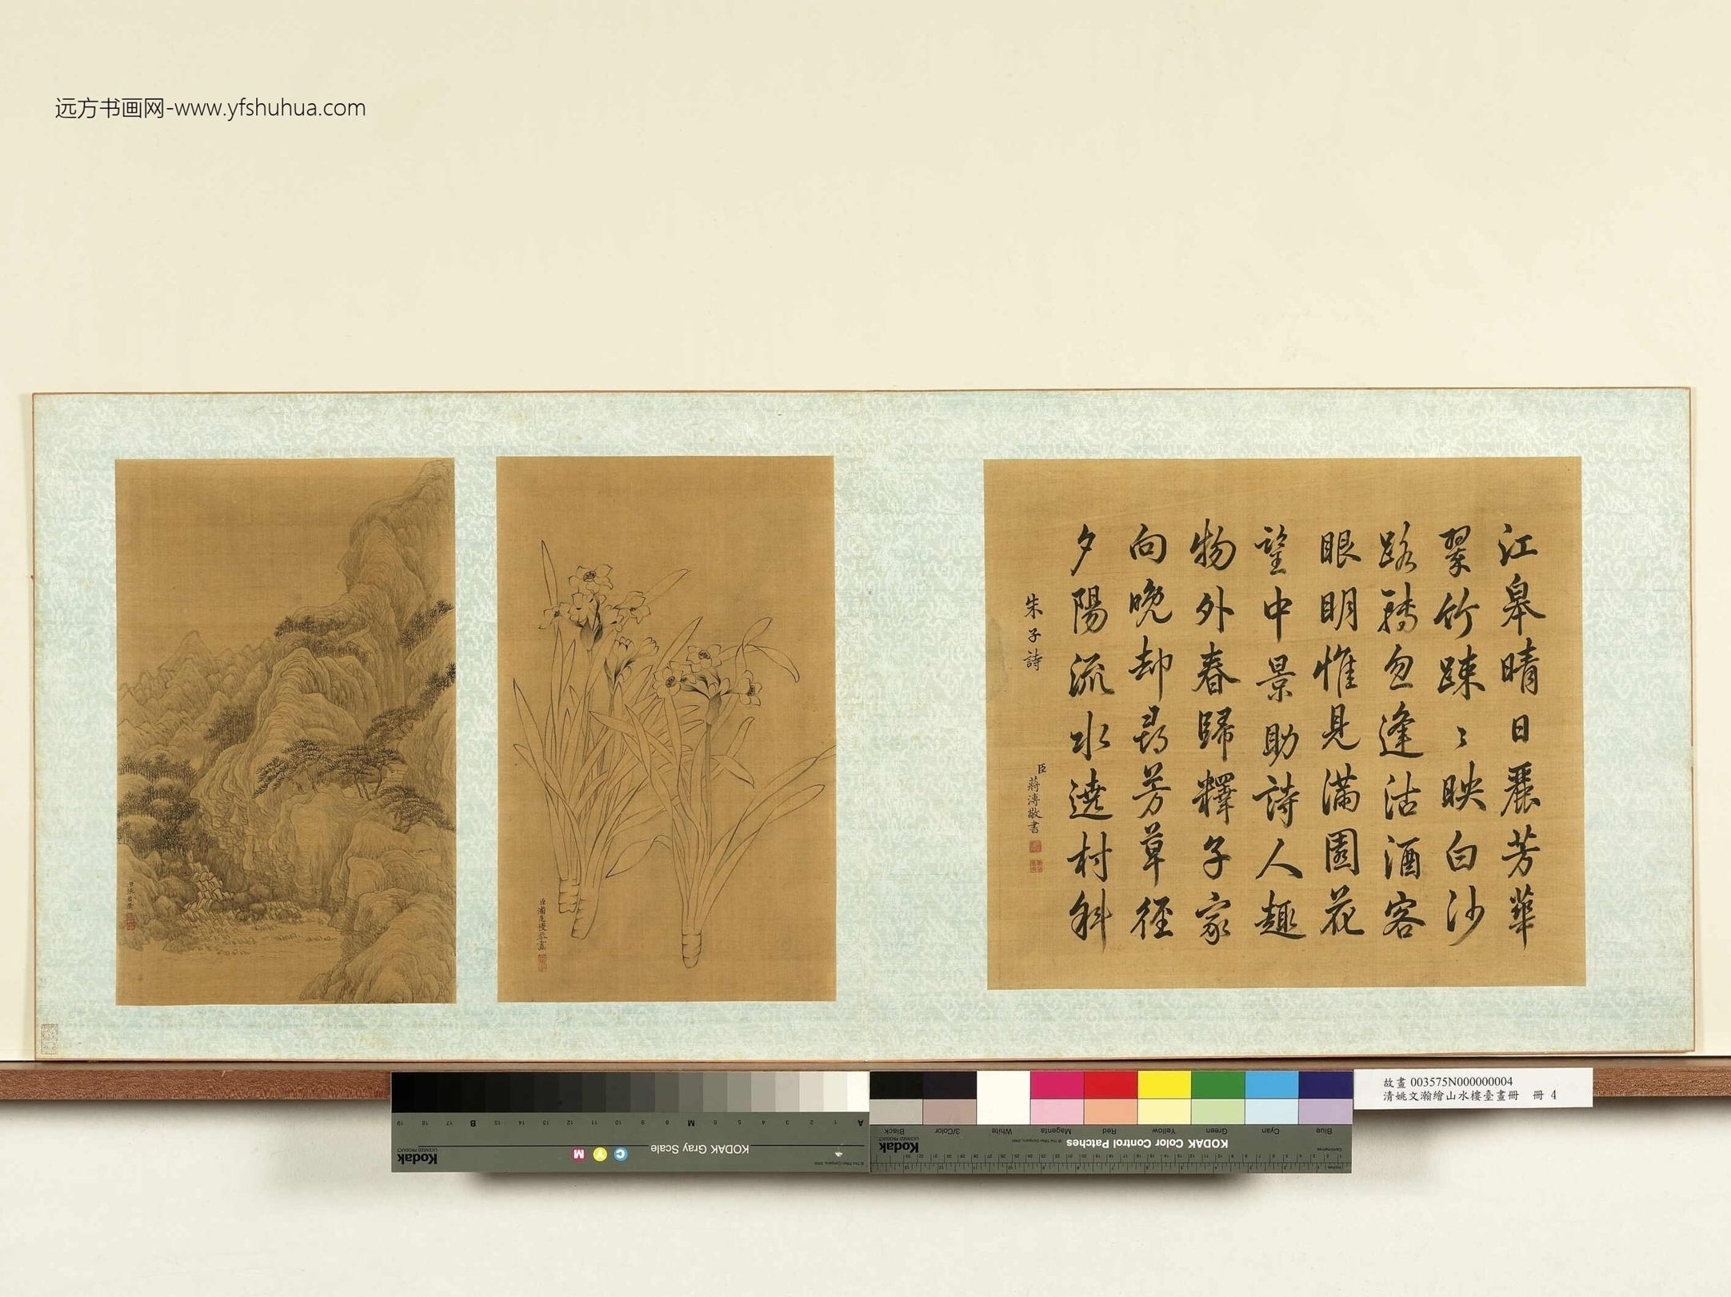 远方书画网-www.yfshuhua.com
江皋晴日麗芳華
翠竹踈〻映白沙
路轉忽逢沽酒客
眼明惟見滿園花
望中景助詩人趣
物外春歸釋子家
向晚却尋芳草徑
夕陽流水遶村斜
朱子詩
臣蔣溥敬書
故畫 003575N000000004
清姚文瀚繪山水樓臺畫冊 冊 4
KODAK Gray Scale
C Y M
Kodak
LICENSED PRODUCT
A 1 2 3 4 5 6 M 8 9 10 11 12 13 14 15 B 17 18 19
KODAK Color Control Patches
Kodak
LICENSED PRODUCT
Blue Cyan Green Yellow Red Magenta White 3/Color Black